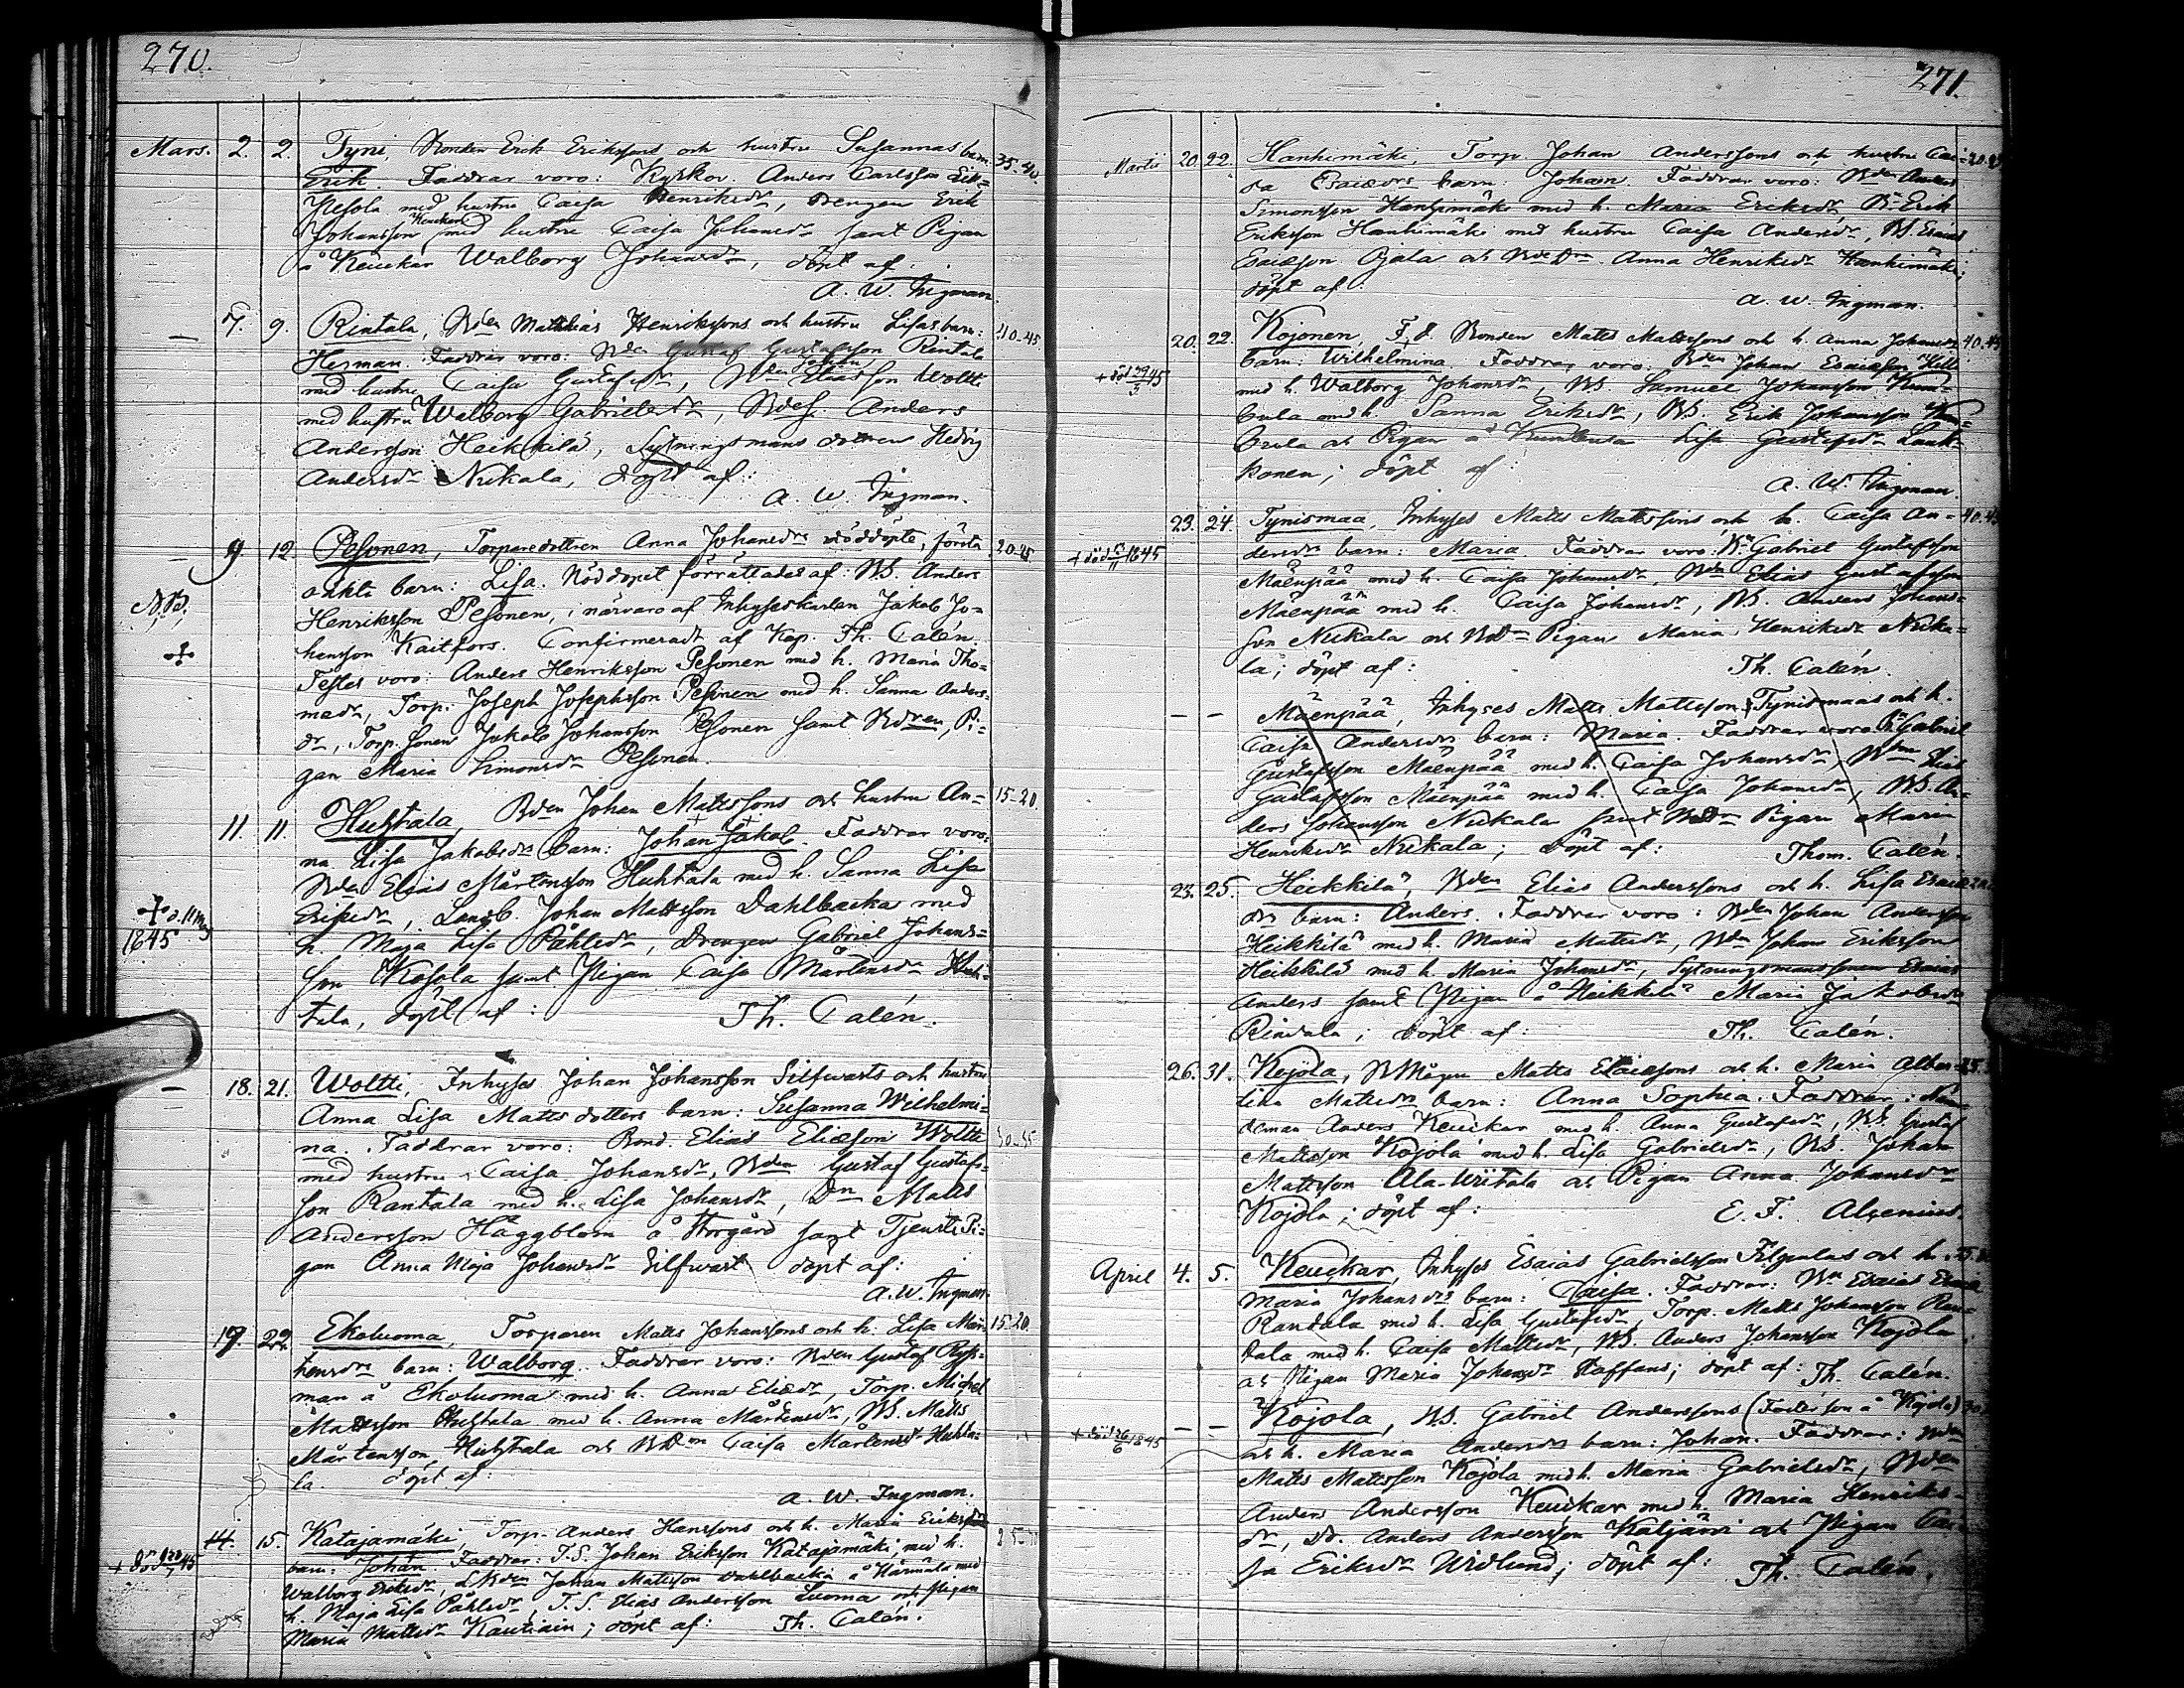 270.
Mars. 2. 2. Tyni, Bonden Erik Erikssons och hustru Susannas barn: 35-40.
Erik. Faddrar voro: Kyrkov. Anders Carlsson
Pesola med hustru Caisa Henriksdr, Drengen Erik
Johansson Keuckar med hustru Caisa Johansdr samt Pigan
å Keuckar Walborg Johansdr, döpt af
A. W. Ingman.
— 7. 9. Rintala, Bden Matthias Henrikssons och hustru Lisas barn: 40-45.
Herman. Faddrar voro: Bden Gustaf Gustafsson Rintala
med hustru Caisa Gustafsdr, Bdn Johan Eliasson Woltti
med hustru Walborg Gabrielsdr, Anders
Andersson Heikkilä, Sytningsmans dottren Hedvig
Andersdr Nukala, döpt af:
A. W. Ingman.
— 9 12. Pesonen, Torparedottren Anna Johansdrs nöddöpte, första 20-25.
oäkta barn: Lisa. Nöddopet förrättades af: BS. Anders
N.B. Henriksson Pesonen, i närvaro af Inhyseskarlen Jakob Jo-
hansson Kaitfors. Confirmeradt af Kap. Th. Calén.
Testes voro: Anders Henriksson Pesonen med h. Maria Tho-
masdr, Torp. Joseph Josephsson Pesonen med h. Sanna Anders-
dr, Torp. sonen Jakob Johansson Pesonen samt Bdren, Pi-
gan Maria Simonsdr Pesonen.
11. 11. Huhtala, Bden Johan Mattssons och hustru An- 15-20.
na Lisa Jakobsdrs barn: Johan Jakob. Faddrar voro:
Bden Elias Mårtensson Huhtala med h. Sanna Lisa
+ d. 11 Maj Eriksdr, Johan Mattsson Dahlbacka med
1845 h. Maja Lisa Påhlsdr, Drengen Gabriel Johans-
son Kosola samt Pigan Caisa Mårtensdr Huh-
tala, döpt af: Th. Calén.
— 18. 21. Woltti, Inhyses Johan Johansson Silfwasts och hustru
Anna Lisa Matts dotters barn: Susanna Wilhelmi-
na. Faddrar voro: Bond. Elias Eliasson Woltti 30-35
med hustru Caisa Johansdr, Bden Gustaf Gustafs-
son Rantala med h. Lisa Johansdr, Dn Matts
Andersson Häggblom å Storgård samt Tjenste Pi-
gan Anna Maja Johansdr Silfwast döpt af:
A. W. Ingman.
19. 22. Ekoluoma, Torparen Matts Johanssons och h. Lisa Mår- 15-20.
tensdrs barn: Walborg. Faddrar voro: Bden Gustaf
man å Ekoluoma med h. Anna Eliasdr, Torp. Michel
Mattsson Huhtala med h. Anna Mårtensdr, BS. Matts
Mårtensson Huhtala och BDrn Caisa Mårtensdr Huhta-
la. döpt af:
A. W. Ingman.
14. 15. Katajamäki Torp. Anders Hanssons och h. Maria Eriksdrs 25-
barn: Johan. Faddrar: T.S. Johan Eriksson Katajamäki med h.
Walborg Eriksdr, Bden Johan Mattsson Dahlbacka å Härmälä med
h. Maja Lisa Påhlsdr T.S. Elias Andersson Luoma och Pigan
Maria Mattsdr Kautiain; döpt af: Th. Calén.
271.
Martii 20. 22. Hanhimäki, Torp. Johan Anderssons och hustru Cai-
sa Esaiædrs barn: Johan. Faddrar voro: Bden Anders
Simonsson Hanhimäki med h. Maria Eriksdr, Bn Erik
Eriksson Hanhimäki med hustru Caisa Andersdr, BS. Esaias
Esaiæson Ojala och Anna Henriksdr Hanhimäki;
döpt af:
A. W. Ingman.
20. 22. Kojonen, F. d. Bonden Matts Mattssons och h. Anna Johansdrs 40.45
barn: Wilhelmina. Faddrar voro: Bden Johan Esaiæson
med h. Walborg Johansdr, BS. Samuel Johansson
med h. Sanna Eriksdr, BS. Erik Johansson
och Pigan å Lisa Gustafsdr Lauk-
konen; döpt af:
A. W. Ingman.
23. 24. Tynismaa, Inhyses Matts Mattssons och h. Caisa An-
dersdrs barn: Maria Faddrar voro: Bn Gabriel Gustafsson
Mäenpää med h. Caisa Johansdr, Bdn Elias Gustafsson
Mäenpää med h. Caisa Johansdr, BS. Anders Johans-
son Nukala och Pigan Maria Henriksdr Nuka-
la; döpt af: Th. Calén.
— — Mäenpää, Inhyses Matts Mattsson Tynismaas och h.
Caisa Andersdrs barn: Maria. Faddrar voro Bn Gabriel
Gustafsson Mäenpää med h. Caisa Johansdr, Elias
Gustafsson Mäenpää med h. Caisa Johansdr, BS. An-
ders Johansson Nukala samt Pigan Maria
Henriksdr Nukala; döpt af: Thom. Calén.
23. 25. Heikkilä, Bden Elias Anderssons och h. Lisa Esaiæ
drs barn: Anders. Faddrar voro: Bden Johan Andersson
Heikkilä med h. Maria Mattsdr, Bdn Johan Eriksson
Heikkilä med h. Maria Johansdr, Sytningsmanssonen Esaias
Anders samt Pigan å Heikkilä Maria Jakobsdr
döpt af: Th. Calén.
26. 31. Kojola, BMågen Matts Esaiæsons och h. Maria Alber-
tina Mattsdrs barn: Anna Sophia. Faddrar: Nän-
deman Anders Keuckar med h. Anna Gustafsdr, BS. Gustaf
Mattsson Kojola med h. Lisa Gabrielsdr, BS. Johan
Mattsson Ala-Uitala och Pigan Anna Johansdr
Kojola; döpt af: E. F. Alcenius.
April 4. 5. Keuckar, Inhyses Esaias Gabrielsson Filpulas och h.
Maria Johansdrs barn: Caisa. Faddrar: Bn Esaias
Rantala med h. Lisa Gustafsdr, Torp. Matts Johansson Ran-
tala med h. Caisa Mattsdr, BS. Anders Johansson Kojola
och Pigan Maria Johansdr Staffans; döpt af: Th. Calén.
— — Kojola, Gabriel Anderssons (Foderson å Kojola)
och h. Maria Andersdrs barn: Johan. Faddrar: Bden
Matts Mattsson Kojola med h. Maria Gabrielsdr, Bden
Anders Andersson Keuckar med h. Maria Henriks-
dr, Dr. Anders Andersson Katjärvi och Pigan Cai-
sa Eriksdr Widlund; döpt af: Th. Calén.